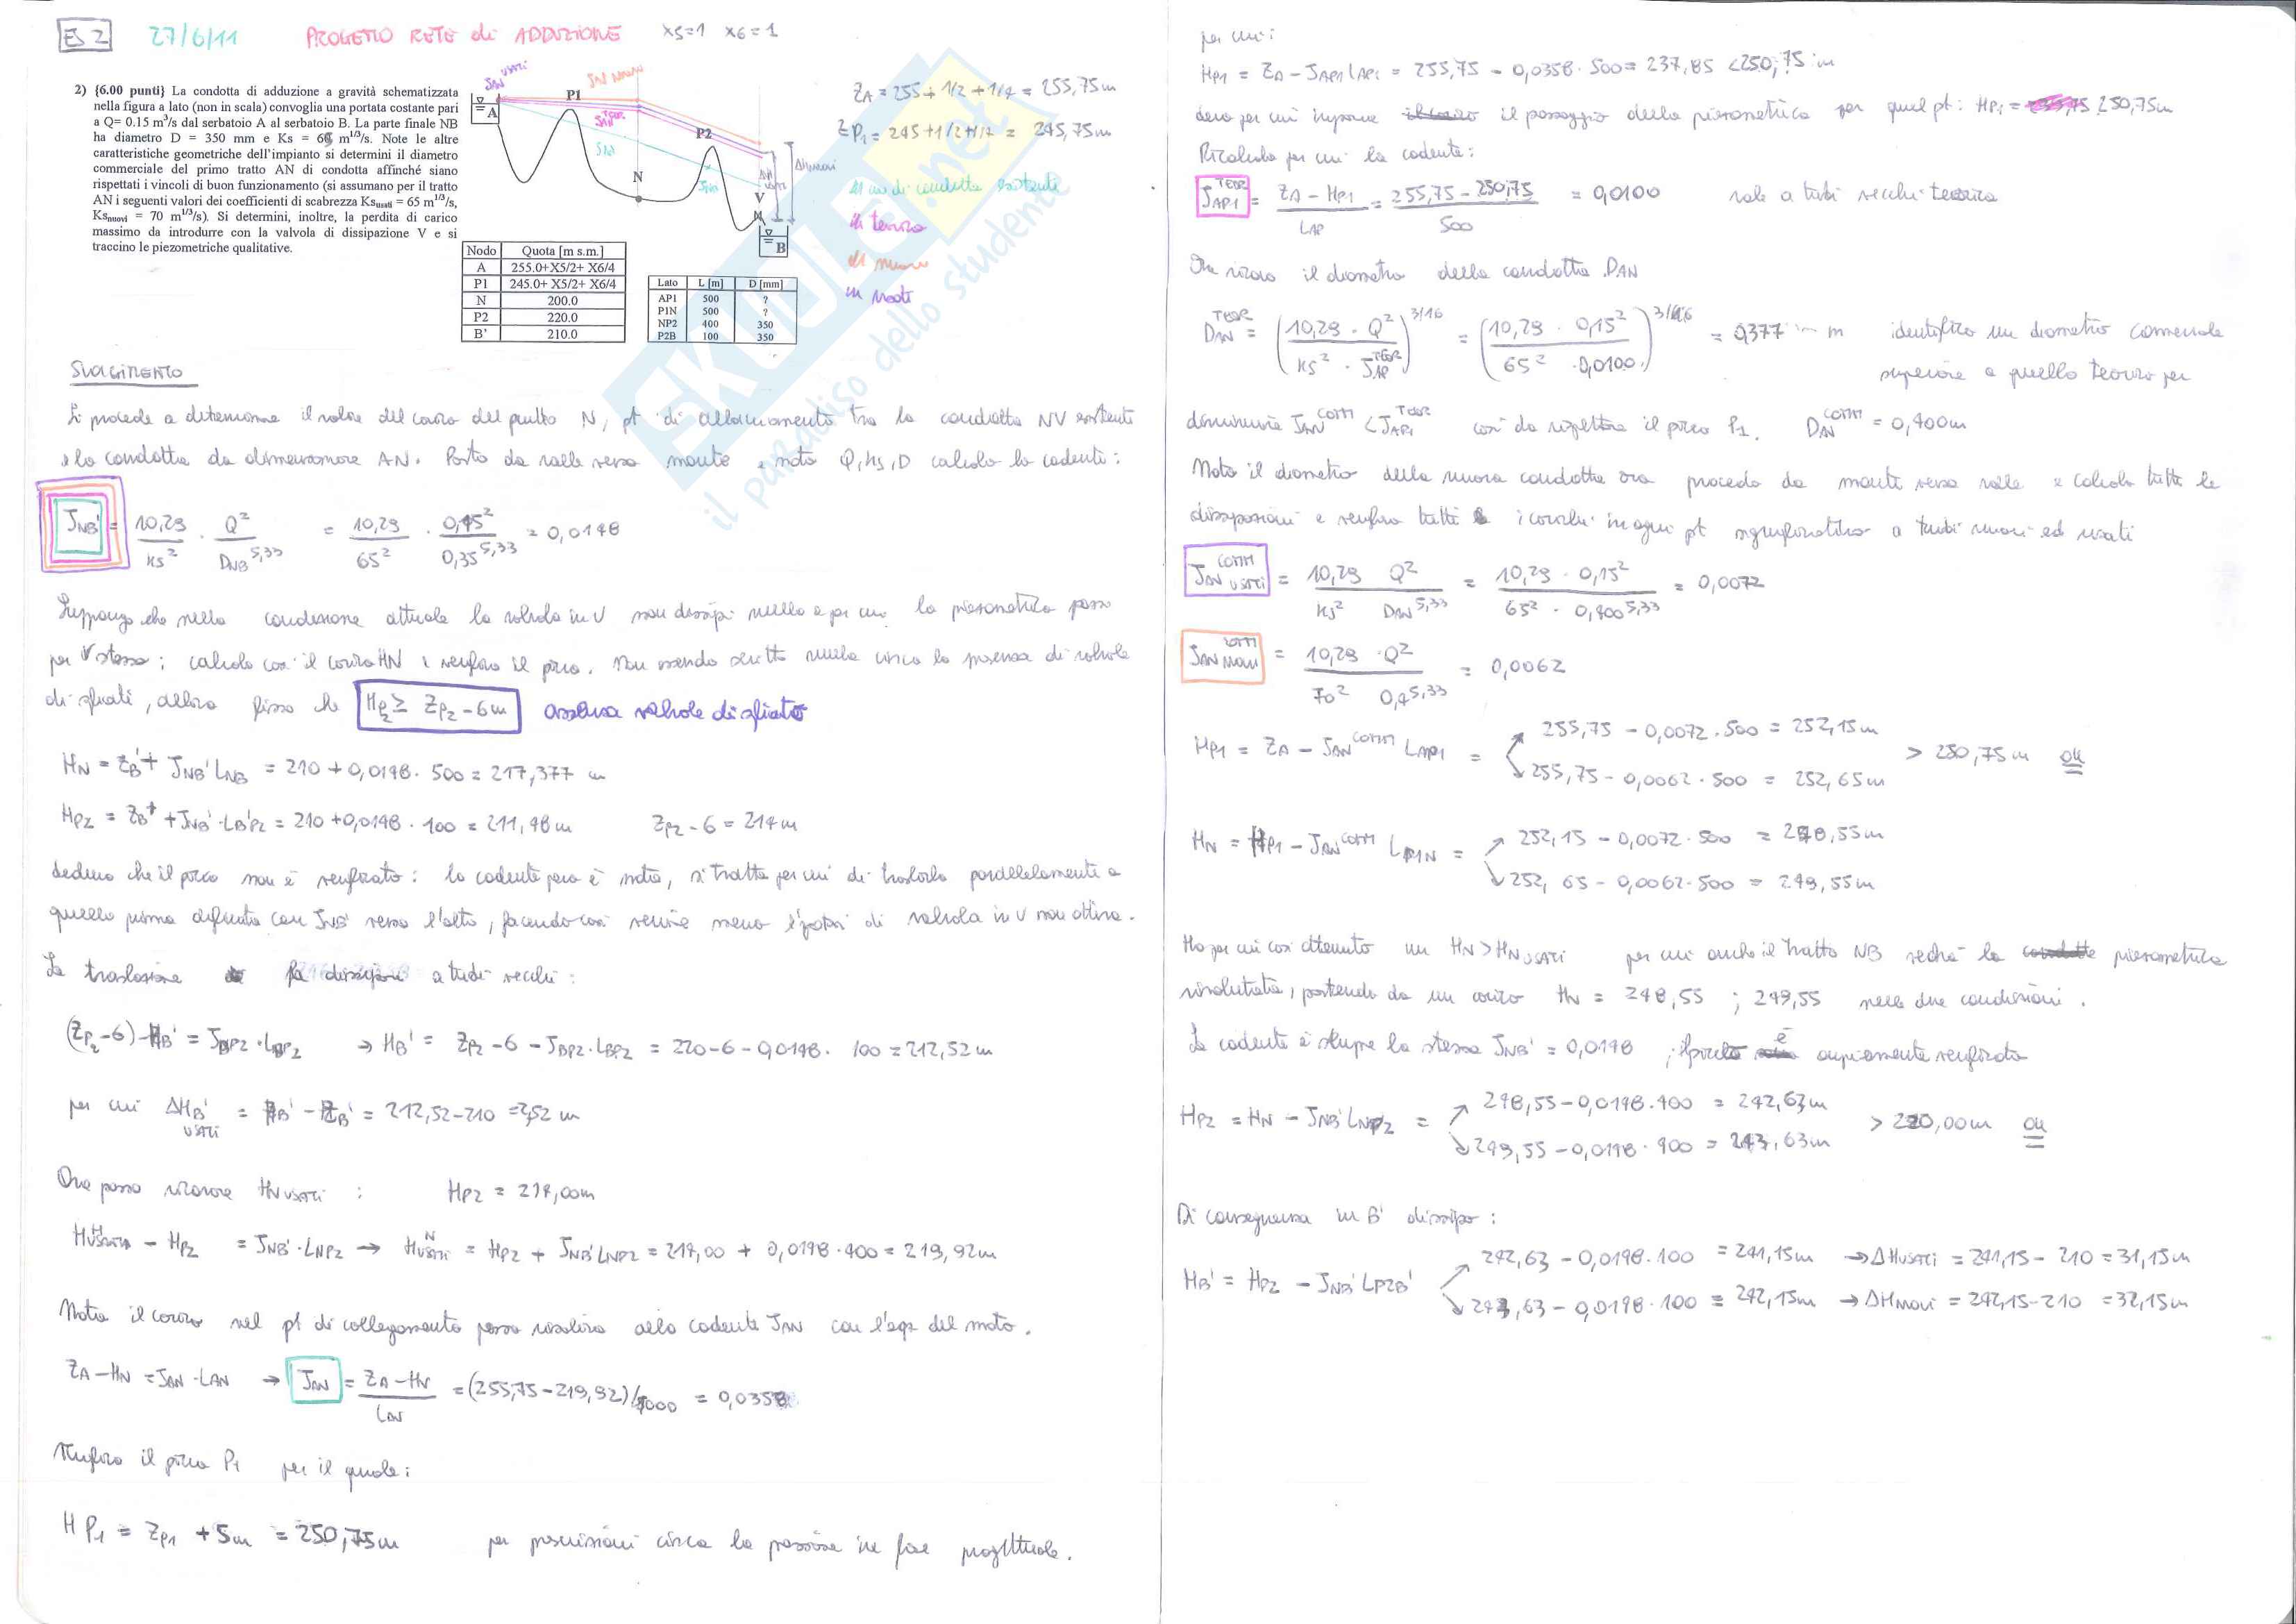 ES 2 27/6/11 PROGETTO RETE di ADDUZIONE x5=1 x6=1
2) {6.00 punti} La condotta di adduzione a gravità schematizzata
nella figura a lato (non in scala) convoglia una portata costante pari
a Q= 0.15 m³/s dal serbatoio A al serbatoio B. La parte finale NB
ha diametro D = 350 mm e Ks = 65 m^1/3/s. Note le altre
caratteristiche geometriche dell'impianto si determini il diametro
commerciale del primo tratto AN di condotta affinché siano
rispettati i vincoli di buon funzionamento (si assumano per il tratto
AN i seguenti valori dei coefficienti di scabrezza Ks usati = 65 m^1/3/s,
Ks nuovi = 70 m^1/3/s). Si determini, inoltre, la perdita di carico
massimo da introdurre con la valvola di dissipazione V e si
traccino le piezometriche qualitative.
A P1 N P2 V B
Nodo Quota [m s.m.]
A 255.0+X5/2+ X6/4
P1 245.0+ X5/2+ X6/4
N 200.0
P2 220.0
B' 210.0
Lato L [m] D [mm]
AP1 500 ?
P1N 500 ?
NP2 400 350
P2B 100 350
ZA = 255 + 1/2 + 1/4 = 255,75m
ZP1 = 245 + 1/2 + 1/4 = 245,75m
SKUOLA.net
il paradiso dello studente
SVOLGIMENTO
Si procede a determinare il valore del carico del punto N, pt di allacciamento tra la condotta NV esistente
e la condotta da dimensionare AN. Parto da valle verso monte e noto Q, Ks, D calcolo la cadente:
JNB' = 10,29/Ks² · Q²/DNB^5,33 = 10,29/65² · 0,15²/0,35^5,33 = 0,0148
Suppongo che nella condizione attuale la valvola in V non dissipi nulla e per cui la piezometrica passi
per V stesso; calcolo così il carico HN e verifico il picco. Non essendo scritto nulla circa la presenza di valvole
di sfiati, allora fisso che HP2 ≥ ZP2 - 6m assenza valvole di sfiato
HN = ZB' + JNB' LNB = 210 + 0,0148 · 500 = 217,377 m
HP2 = ZB' + JNB' · LB'P2 = 210 + 0,0148 · 100 = 211,48m ZP2 - 6 = 214m
deduco che il picco non è verificato: la cadente però è nota, si tratta per cui di traslarla parallelamente a
quella prima definita con JNB' verso l'alto, facendo così venire meno l'ipotesi di valvola in V non attiva.
La traslazione fa dissipare a tubi vecchi:
(ZP2 - 6) - HB' = JBP2 · LBP2 → HB' = ZP2 - 6 - JBP2 · LBP2 = 220 - 6 - 0,0148 · 100 = 212,52m
per cui ΔHB' usati = HB' - ZB' = 212,52 - 210 = 2,52 m
Ora posso ricavare HN usati : HP2 = 214,00m
HN usati - HP2 = JNB' · LNP2 → HN usati = HP2 + JNB' LNP2 = 214,00 + 0,0148 · 400 = 219,92m
Noto il carico nel pt di collegamento posso risalire alla cadente JAN con l'eqz del moto.
ZA - HN = JAN · LAN → JAN = ZA - HN / LAN = (255,75 - 219,92)/1000 = 0,0358
Verifico il picco P1 per il quale:
HP1 = ZP1 + 5m = 250,75m per prescrizioni circa la pressione in fase progettuale.
per cui:
HP1 = ZA - JAP1 LAP1 = 255,75 - 0,0358 · 500 = 237,85 < 250,75 m
devo per cui imporre il passaggio della piezometrica per quel pt: HP1 = 250,75m
Ricalcolo per cui la cadente:
JAP1 TEOR = ZA - HP1 / LAP = 255,75 - 250,75 / 500 = 0,0100 vale a tubi vecchi teorico
Ora ricavo il diametro della condotta DAN
DAN TEOR = (10,29 · Q² / Ks² · JAP TEOR)^3/16 = (10,29 · 0,15² / 65² · 0,0100)^3/16 = 0,377 m identifico un diametro commerciale
superiore a quello teorico per
diminuire JAN COMM < JAP1 TEOR così da rispettare il picco P1. DAN COMM = 0,400m
Noto il diametro della nuova condotta ora procedo da monte verso valle e calcolo tutte le
dissipazioni e verifico tutti i carichi in ogni pt significativo a tubi nuovi ed usati
JAN COMM USATI = 10,29 Q² / Ks² DAN^5,33 = 10,29 · 0,15² / 65² · 0,400^5,33 = 0,0072
JAN COMM NUOVI = 10,29 · Q² / 70² 0,4^5,33 = 0,0062
HP1 = ZA - JAN COMM LAP1 = 255,75 - 0,0072 · 500 = 252,15m
255,75 - 0,0062 · 500 = 252,65m > 250,75m OK
HN = HP1 - JAN COMM LP1N = 252,15 - 0,0072 · 500 = 248,55m
252,65 - 0,0062 · 500 = 249,55m
Ho per cui così ottenuto un HN > HN USATI per cui anche il tratto NB vedrà la piezometrica
rivalutata, partendo da un carico HN = 248,55 ; 249,55 nelle due condizioni.
La cadente è sempre la stessa JNB' = 0,0148 ; il picco è ampiamente verificato
HP2 = HN - JNB' LNP2 = 248,55 - 0,0148 · 400 = 242,63m
249,55 - 0,0148 · 400 = 243,63m > 220,00m OK
Di conseguenza in B' dissipo:
HB' = HP2 - JNB' LP2B' 242,63 - 0,0148 · 100 = 241,15m → ΔHusati = 241,15 - 210 = 31,15m
243,63 - 0,0148 · 100 = 242,15m → ΔHnuovi = 242,15 - 210 = 32,15m